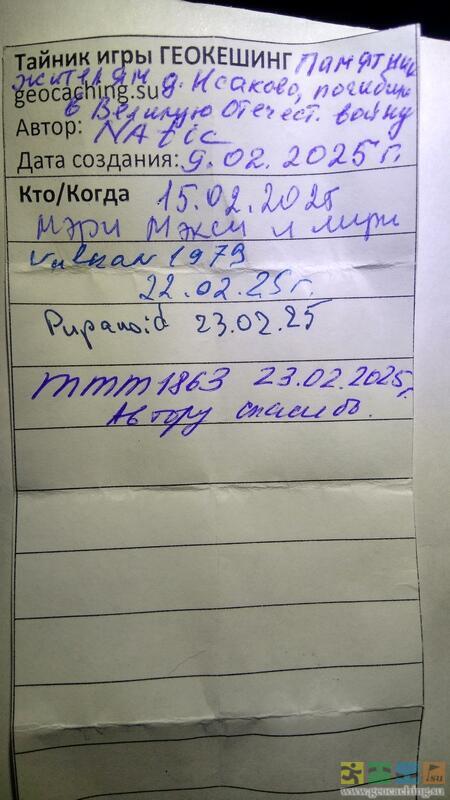 Тайник игры ГЕОКЕШИНГ Памятник
жителям д. Исаково, погибшим
geocaching.su в Великую Отечест. войну
Автор: NAtic
Дата создания: 9.02.2025г.
Кто/Когда 15.02.2025
Мэри Мэкси и Мири
Vulkan1979
22.02.25г.
Pupanoid 23.02.25
mmm1863 23.02.2025г.
Автору спасибо.
www.geocaching.su